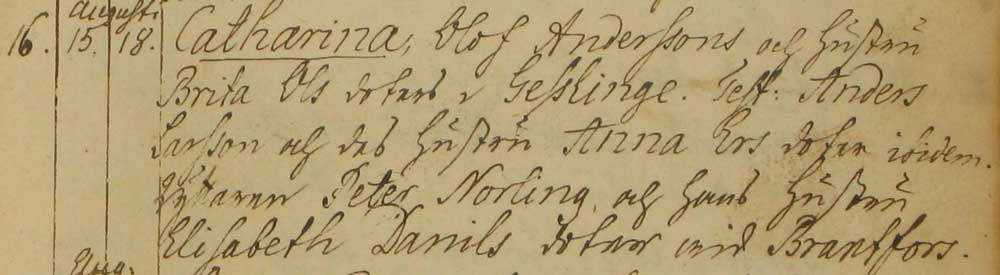 Augusti
16. 15. 18. Catharina, Olof Anderssons och hustru
Brita Ols doters i Gesslinge. Test: Anders
Larsson och des hustru Anna Ers doter ibidem.
Ryttaren Peter Norling, och hans hustru
Elisabeth Danils doter vid Brantfors.
Aug: